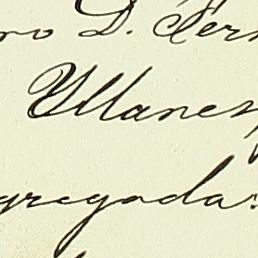 ro D. Fer
Yllanes,
gregada